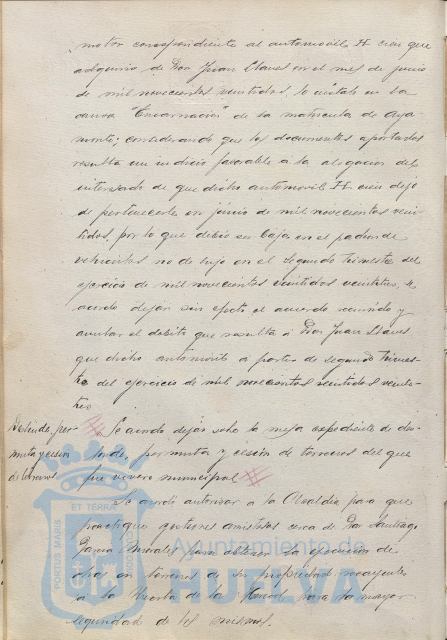 motor correspondiente al automovil H. cien que
adquirio de Don Juan Llaves en el mes de junio
de mil novecientos veintidos, lo instalo en la
canoa "Encarnacion" de la matricula de Aya-
monte; considerando que los documentos aportados
resulta un indicio favorable a la alegacion del
interesado de que dicho automovil H. cien dejó
de pertenecerle en junio de mil novecientos vein-
tidos, por lo que debió ser baja en el padron de
vehiculos en el segundo trimestre del
ejercicio de mil novecientos veintidos veintitres, se
acordo dejar sin efecto el acuerdo recurrido y
anular el debito que resulta a Don Juan Llaves
por dicho automovil a partir de segundo trimes-
tre del ejercicio de mil novecientos veintidos veinti-
tres.
Deslinde, per-
muta y cesion
de terrenos
Se acordo dejar sobre la mesa expediente de des-
linde, permuta y cesion de terrenos del que
fue vivero municipal
Se acordo autorizar a la Alcaldia para que
practique gestiones amistosas cerca de Don Santiago
Garcia Morales para obtener la ejecucion de
obras en terrenos de su propiedad recayentes
a la Cuesta de la para la mayor
seguridad de los mismos.
PORTUS MARIS
ET TERRAE
Ayuntamiento de
HUELVA